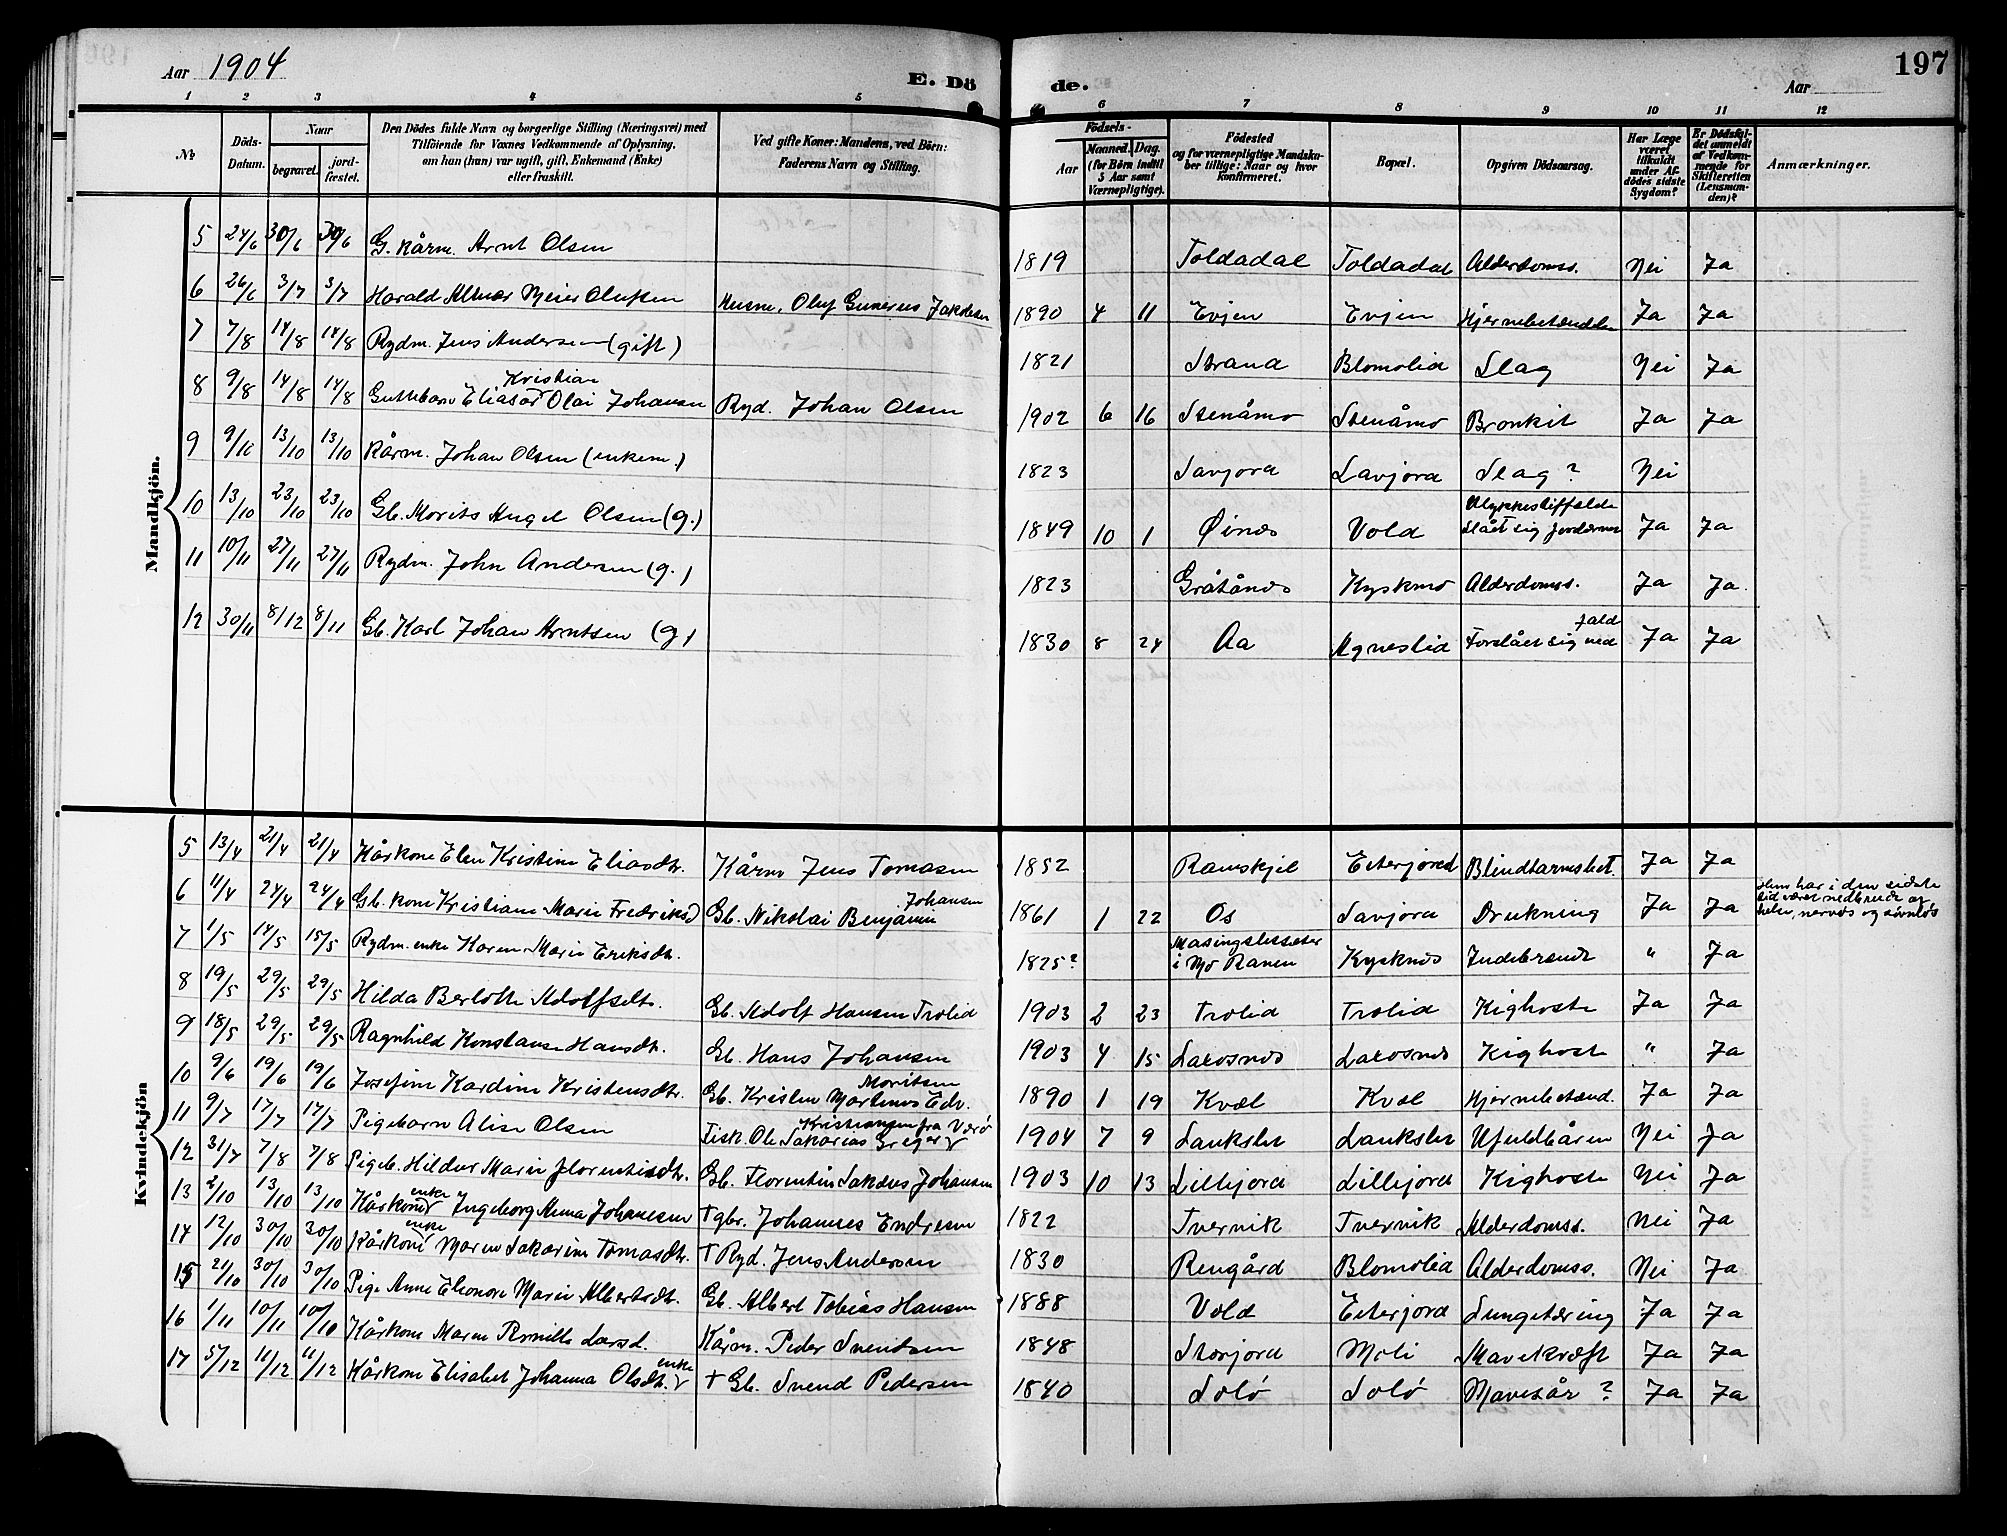 Aar 1904
E. Dö
de.
Aar
197
1 2 3 4 5 6 7 8 9 10 11 12
№
Döds-Datum.
Naar
begravet.
jord-fæstet.
Den Dödes fulde Navn og borgerlige Stilling (Næringsvei) med
Tilföiende for Voxnes Vedkommende af Oplysning,
om han (hun) var ugift, gift, Enkemand (Enke)
eller fraskilt.
Ved gifte Koner: Mandens, ved Börn:
Faderens Navn og Stilling.
Födsels-
Aar
Maaned. Dag.
(for Börn indtil
5 Aar samt
Værnepligtige).
Födested
og for værnepligtige Mandska-
ber tillige: Naar og hvor
konfirmeret.
Bopæl.
Opgiven Dödsaarsag.
Har Læge
været
tilkaldt
under Af-
dödes sidste
Sygdom?
Er Dödsfal-
det anmeldt
af Vedkom-
mende for
Skifteretten
(Lensman-
den)?
Anmærkninger.
Mandkjön.
5 24/6 30/6 30/6 G. Kårm. Arnt Olsen 1819 Toldadal Toldadal Alderdomss. Nei Ja
6 26/6 3/7 3/7 Harald Meier Olufsen Husm. Oluf Gunerus Jakobsen 1890 4 11 Evjen Evjen Ja Ja
7 7/8 14/8 14/8 Rydm. Jens Andersen (gift) 1821 Strand Blomolid Slag Nei Ja
Kristian
8 9/8 14/8 14/8 Guttebarn Eliasar Olai Johansen Ryd. Johan Olsen 1902 6 16 Stenåmo Stenåmo Bronkit Ja Ja
9 9/10 13/10 13/10 Kårm. Johan Olsen (enkem.) 1823 Savjord Savjord Slag? Nei
10 13/10 23/10 23/10 Gb. Morits Angel Olsen (g.) 1849 10 1 Øinæs Vold Ulykkestilfælde slået sig Ja Ja
11 10/11 27/11 27/11 Rydm. John Andersen (g.) 1823 Gråtånæs Kyskmo Alderdomss. Ja Ja
12 30/11 8/12 8/11 Gb. Karl Johan Arntsen (g) 1830 8 24 Aa Agneslid Forslået sig ved fald Ja Ja
Kvindekjön
5 13/4 21/4 21/4 Kårkone Elen Kristine Eliasdtr. Kårm Jens Tomasen 1852 Ramskjel Eiterjord Blindtarmsbet. Ja Ja
6 11/4 24/4 24/4 Gb. kone Kristiane Marie Fredriksd Gb. Nikolai Benjamin Johansen 1861 1 22 Os Savjord Drukning Ja Ja Hun har i den sidste
tid været nedbrudt af
helse, nervøs og søvnløs
7 1/5 14/5 15/5 Rydm. enke Karen Marie Eriksdt. 1825? Masingsletsæter i Mo Ranen Kysknæs Indebrændt " Ja
8 19/5 29/5 29/5 Hilda Berlotte Adolfsdt. Gb. Adolf Hansen Trolid 1903 2 23 Trolid Trolid Kighoste Ja Ja
9 18/5 29/5 29/5 Ragnhild Konstanse Hansdt. Gb. Hans Johansen 1903 4 15 Laxosnæs Laxosnæs Kighoste " Ja
10 9/6 19/6 19/6 Josefine Kardine Kristensdtr. Gb. Kristen Martinus Edv. Moritsen 1890 1 19 Kvæl Kvæl Hjernebetænd. Ja Ja
11 9/7 17/7 17/7 Pigebarn Alise Olsen Fisk. Ole Sakarias Greger Kristiansen fra Værø 1904 7 9 Laukslet Laukslet Ufuldbåren Nei Ja
12 31/7 7/8 7/8 Pigeb. Hildur Marie Florentisdtr. Gb. Florentin Sakæus Johansen 1903 10 13 Lillejord Lillejord Kighoste Nei Ja
13 2/10 13/10 13/10 Kårkone enke Ingeborg Anna Johannesen † gbr. Johannes Endresen 1822 Tvervik Tvervik Alderdomss. Nei Ja
14 12/10 30/10 30/10 Kårkone enke Maren Sakarine Tomasdtr. † Ryd. Jens Andersen 1830 Rengård Blomolid Alderdomss. Nei Ja
15 21/10 30/10 30/10 Pige Anne Eleonore Marie Albertsdt. Gb. Albert Tobias Hansen 1888 Vold Eiterjord Lungetæring Ja Ja
16 1/11 10/11 10/10 Kårkone Maren Pernille Larsd. Kårm. Peder Svendsen 1848 Storjord Moli Mavekræft Ja Ja
17 5/12 11/12 11/12 Kårkone Elisabet Johanna Olsdt. enke † Gb. Svend Pedersen 1840 Solø Solø Mavesår? Ja Ja